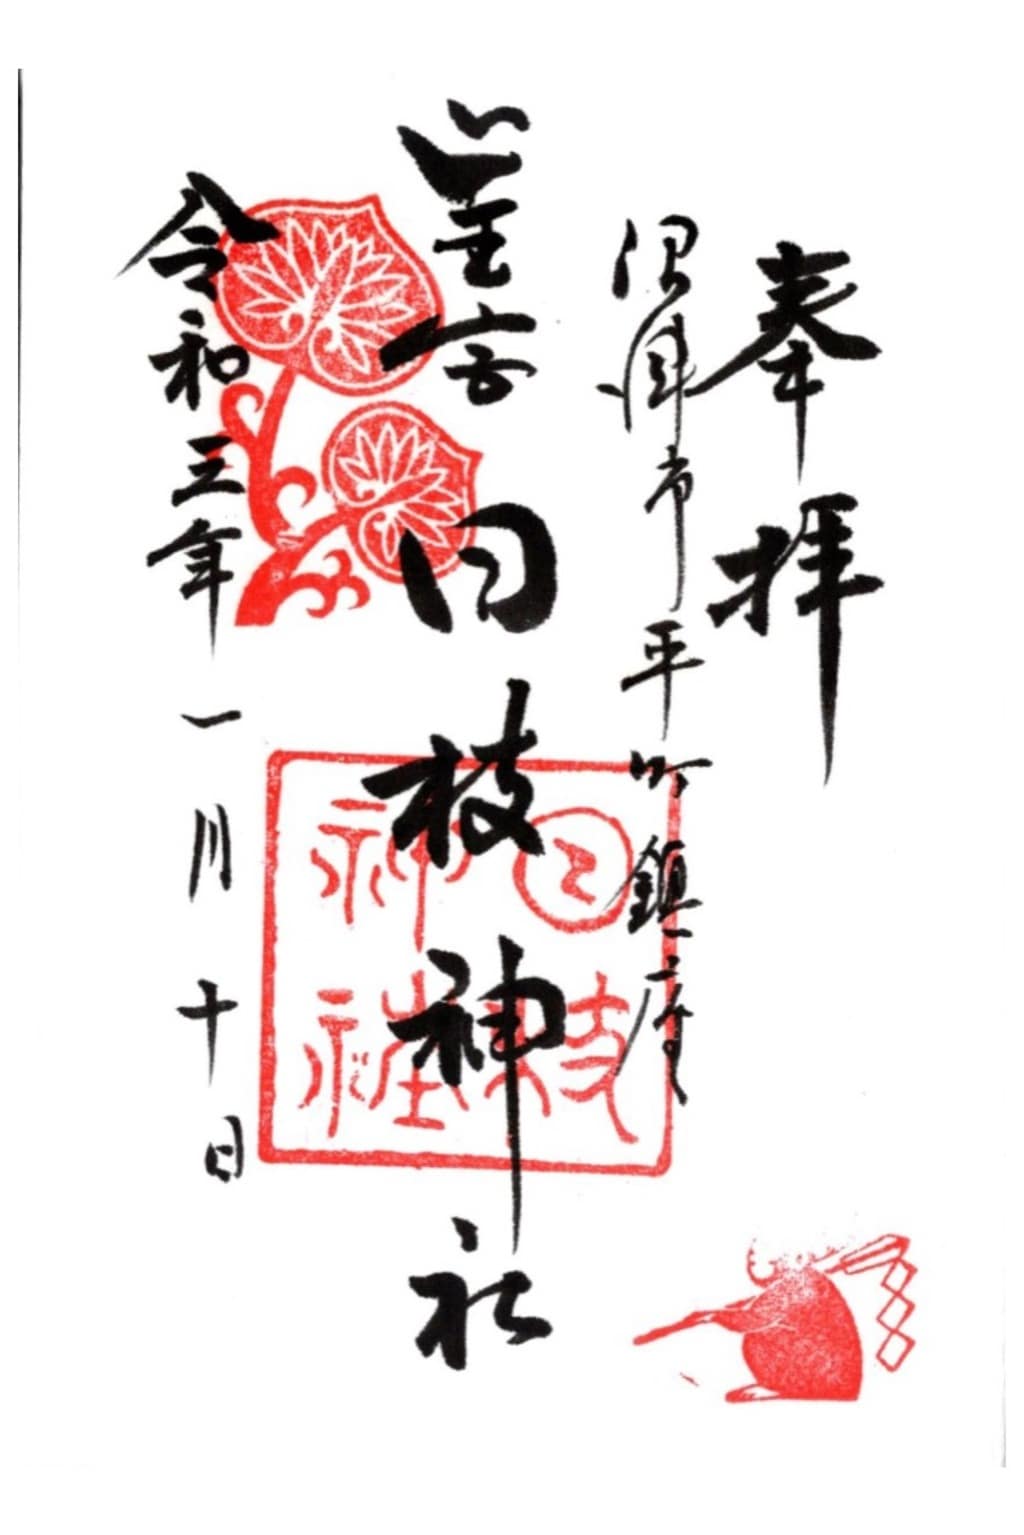 奉拝
沼津市平町鎮座
山王宮日枝神社
令和三年一月十日
日枝
神社